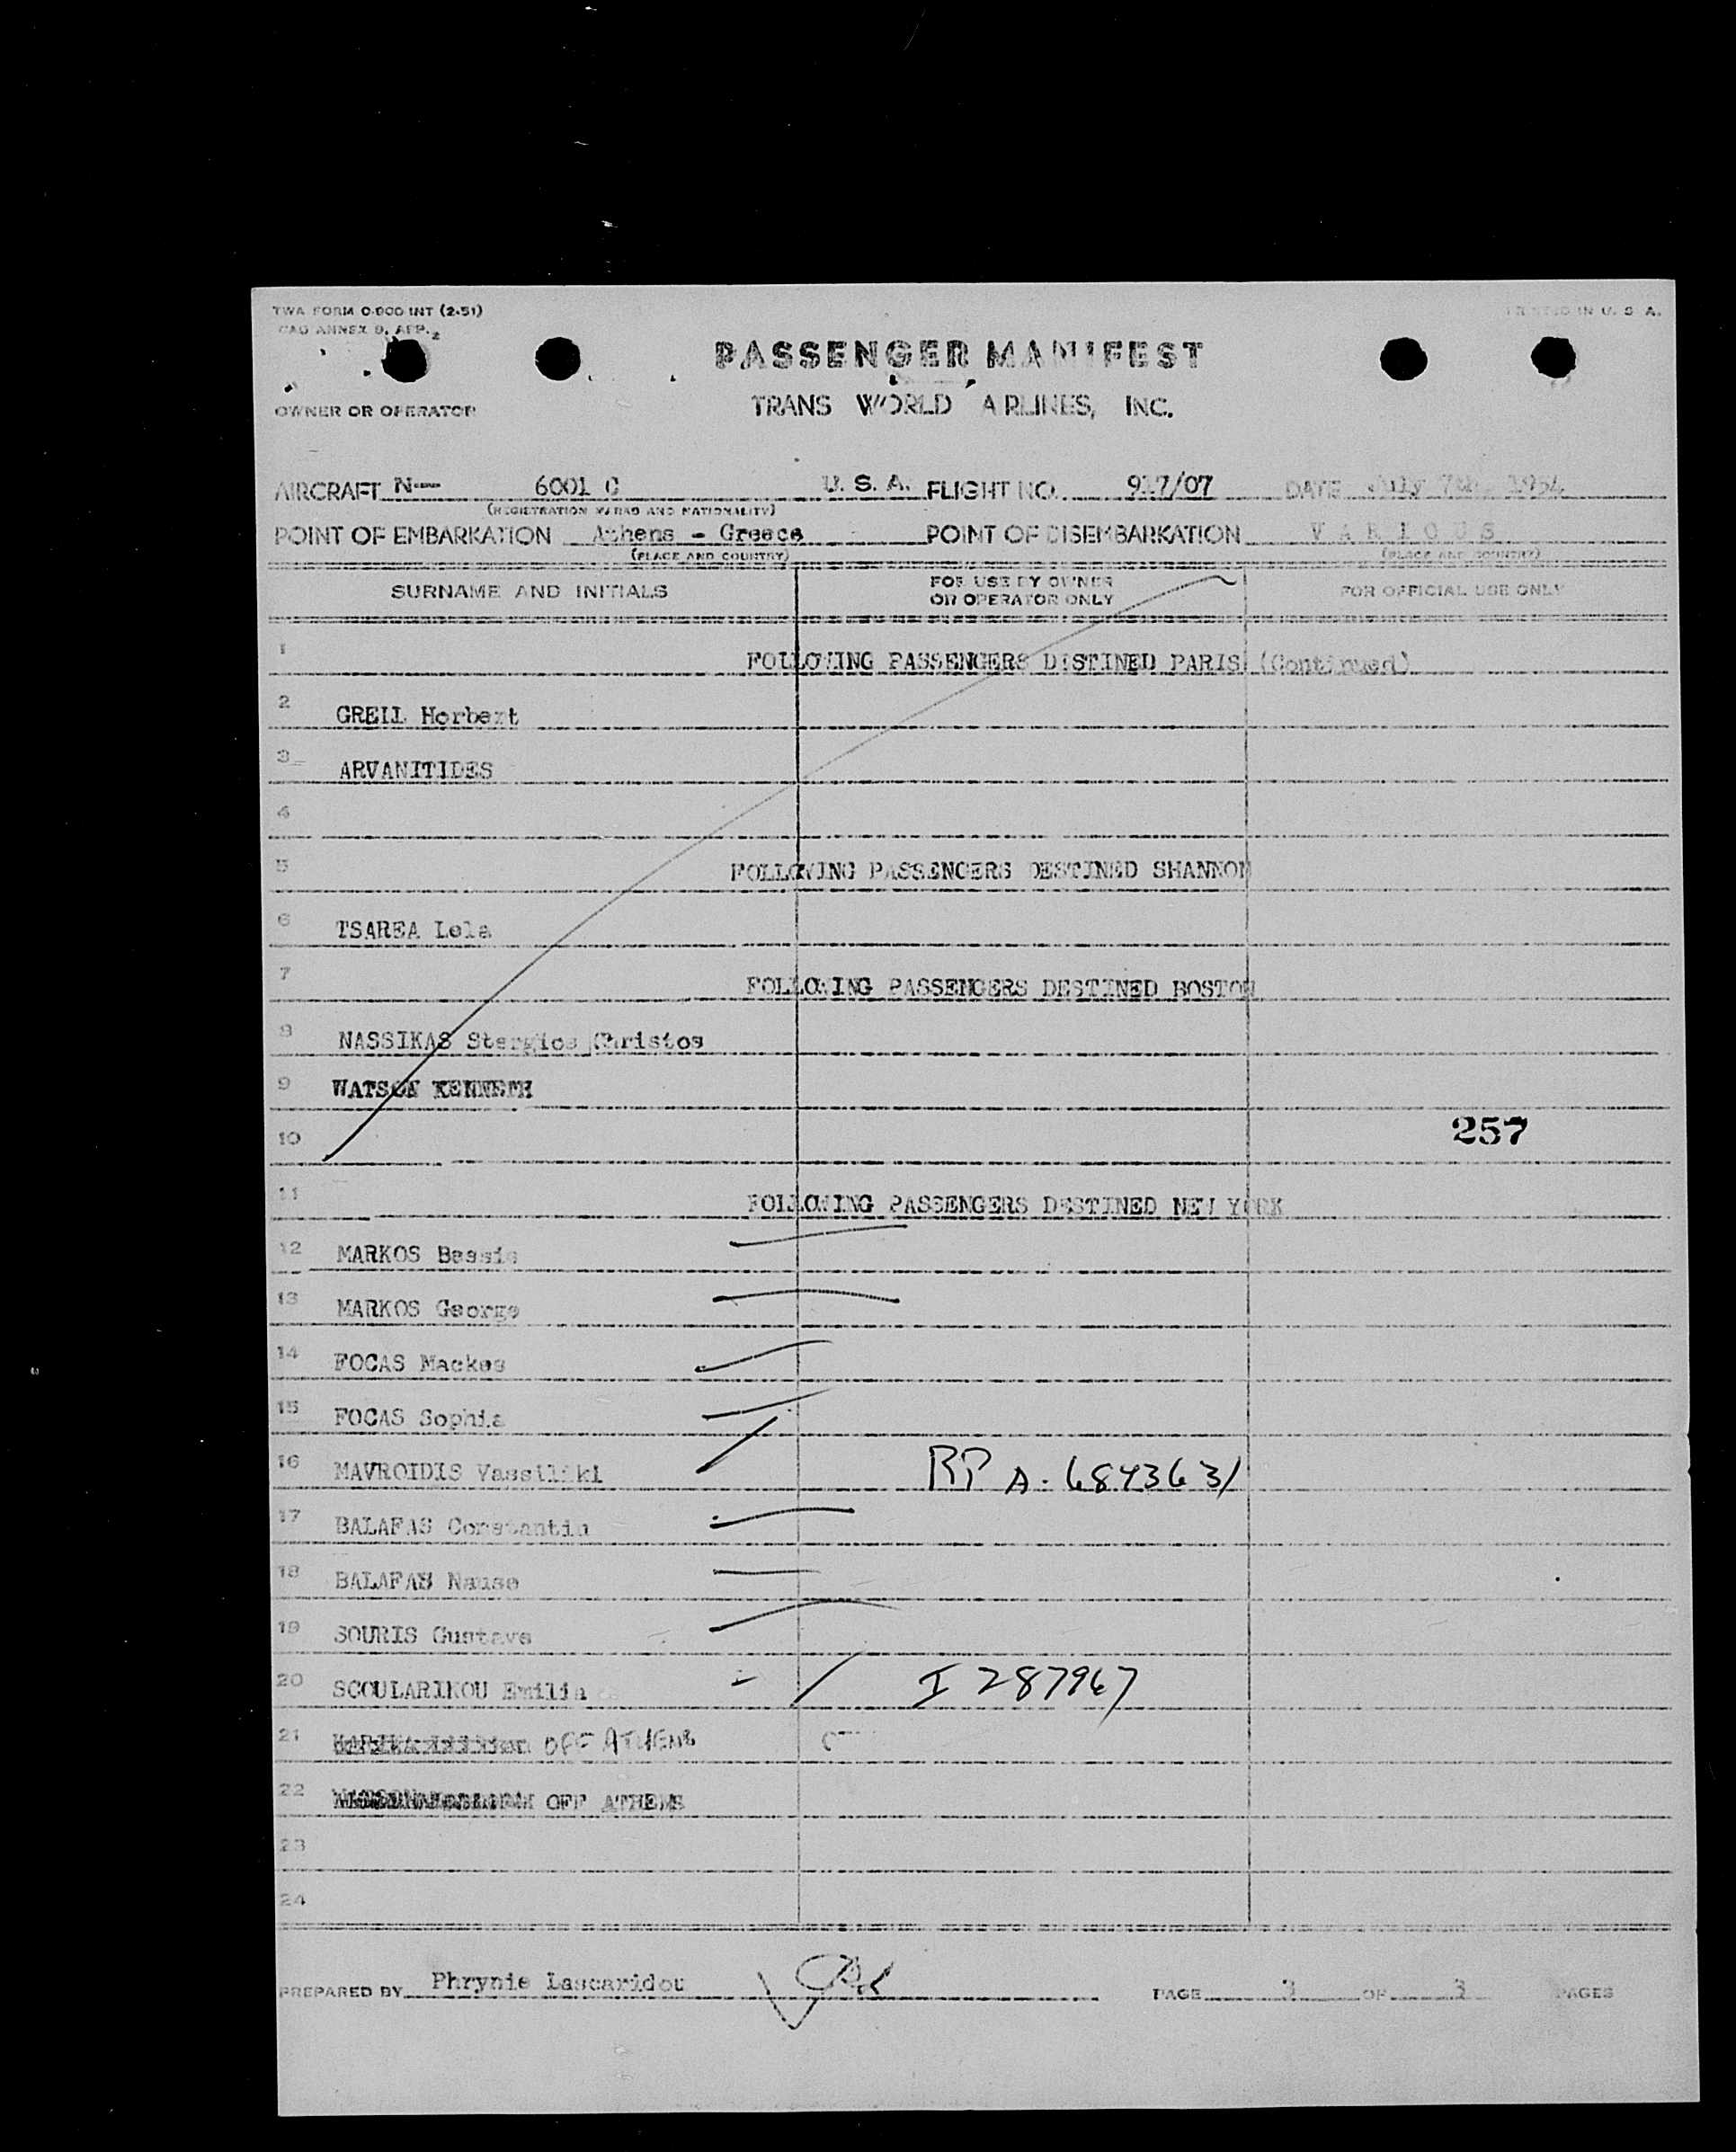 TWA FORM O-800 INT (2-51)
PRINTED IN U. S. A.
ANNEX 9, APP. 2
PASSENGER MANIFEST
OWNER OR OPERATOR
TRANS WORLD AIRLINES, INC.
AIRCRAFT N— 6001 C U. S. A. FLIGHT NO. 917/07 DATE July 7th, 1954
(REGISTRATION MARKS AND NATIONALITY)
POINT OF EMBARKATION Athens - Greece POINT OF DISEMBARKATION V A R I O U S
(PLACE AND COUNTRY) (PLACE AND COUNTRY)
SURNAME AND INITIALS FOR USE BY OWNER OR OPERATOR ONLY FOR OFFICIAL USE ONLY
1 FOLLOWING PASSENGERS DISTINED PARIS (Continued)
2 GREIL Horbert
3 ARVANITIDES
4
5 FOLLOWING PASSENGERS DESTINED SHANNON
6 TSAREA Lela
7 FOLLOWING PASSENGERS DESTINED BOSTON
8 NASSIKAS Stergios Christos
9 WATSON KENNETH
10 257
11 FOLLOWING PASSENGERS DESTINED NEW YORK
12 MARKOS Bessie
13 MARKOS George
14 FOCAS Mackes
15 FOCAS Sophia
16 MAVROIDIS Vassiliki RP A-6843631
17 BALAFAS Constantin
18 BALAFAS Nause
19 SOURIS Gustave
20 SCOULARIKOU Emilia I 287967
21 OFF ATHENS
22 OFF ATHENS
23
24
PREPARED BY Phrynie Lascaridou PAGE 3 OF 3 PAGES